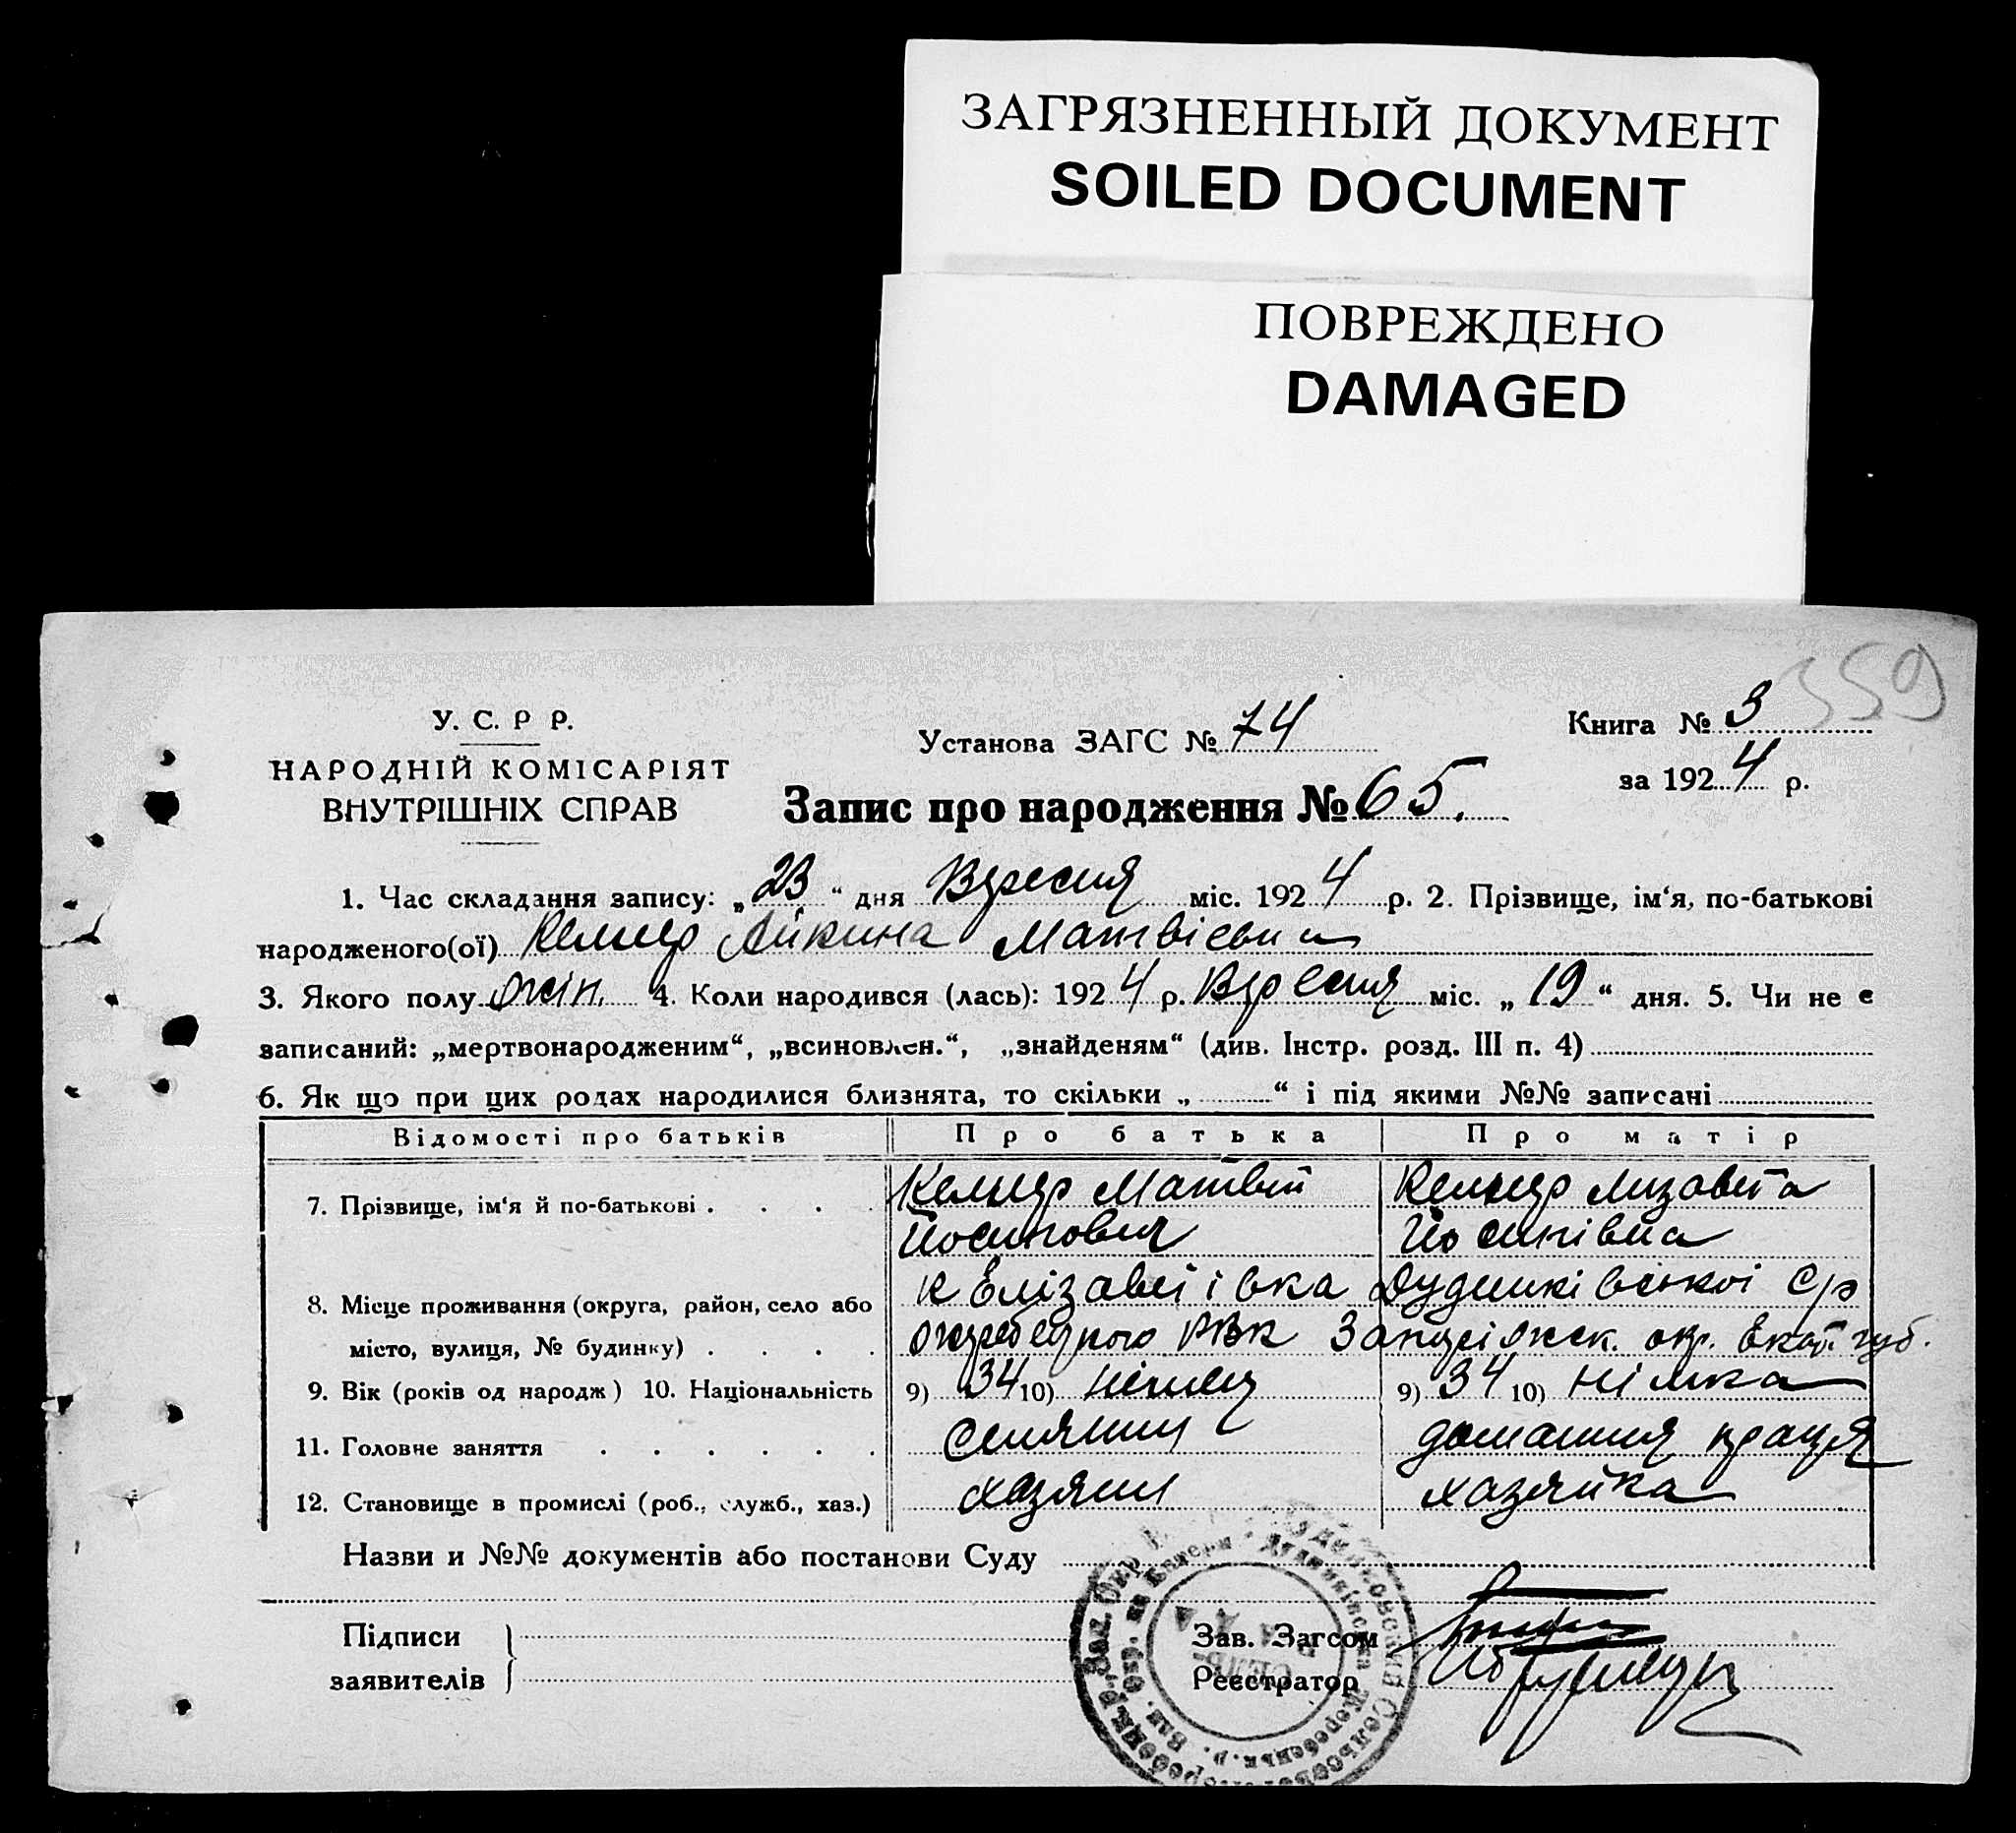 ЗАГРЯЗНЕННЫЙ ДОКУМЕНТ
SOILED DOCUMENT
ПОВРЕЖДЕНО
DAMAGED
359
У. С. Р Р.
НАРОДНІЙ КОМІСАРІЯТ
ВНУТРІШНІХ СПРАВ
Установа ЗАГС № 74
Книга № 3
за 1924 р.
Запис про народження № 65.
1. Час складання запису: „23“ дня Вересня міс. 1924 р. 2. Прізвище, ім‘я, по-батькові
народженого(ої) Келлер Матвієвна
3. Якого полу жін. 4. Коли народився (лась): 1924 р. Вересня міс. „19“ дня. 5. Чи не є
записаний: „мертвонародженим“, „всиновлен.“, „знайденям“ (див. Інстр. розд. III п. 4)
6. Як що при цих родах народилися близнята, то скільки „ “ і під якими №№ записані
Відомості про батьків Про батька Про матір
7. Прізвище, ім‘я й по-батькові . . . . Келлер Матвій Келлер Лизавета
Йосипович Йосипівна
8. Місце проживання (округа, район, село або К Елізаветівка С/р
місто, вулиця, № будинку) . . . . РВК Запоріжск. окр. Екат. губ.
9. Вік (років од народж) 10. Національність 9) 34 10) німець 9) 34 10) німка
11. Головне заняття . . . . . . селянин домашня праця
12. Становище в промислі (роб., служб., хаз.) хазяин хазяйка
Назви и №№ документів або постанови Суду
Підписи
заявителів
Зав. Загсом
Реєстратор